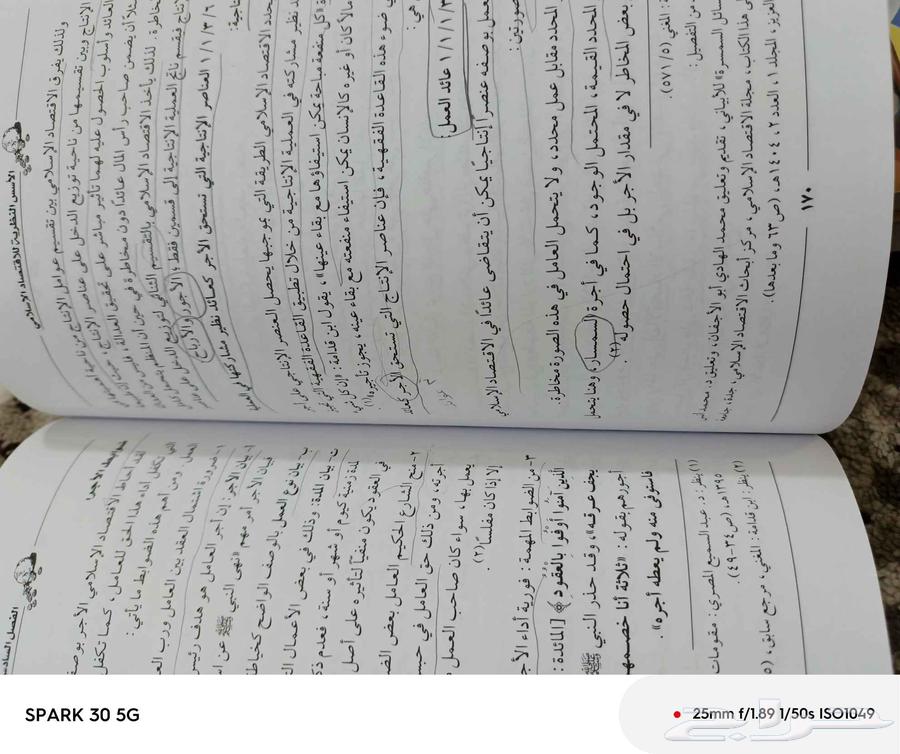 الأسس النظرية للاقتصاد الإسلامي
ولذلك يفرق الاقتصاد الإسلامي بين تقسيم عوامل الإنتاج من ناحية
الإنتاج وبين تقسيمها من ناحية توزيع الدخل على عناصر الإنتاج
العائد وأسلوب الحصول عليه لهما تأثير مباشر على تحقيق العدالة، فليس من
أن يضمن صاحب رأس المال عائداً دون مخاطرة في حين أن المنظم
مخاطرة. لذلك يأخذ الاقتصاد الإسلامي بالتقسيم الثنائي لتوزيع الدخل على
وتقسم ناتج العملية الإنتاجية إلى قسمين فقط، الأجور والأرباح
١/١/٣/٦ العناصر الإنتاجية التي تستحق الأجر كعائد نظير مشاركتها في العملية
الإنتاجية:
تحدد الاقتصاد الإسلامي الطريقة التي بموجبها يحصل العنصر الإنتاجي على أجر
نظير مشاركته في العملية الإنتاجية من خلال تطبيق القاعدة الفقهية
كل منفعة مباحة يمكن استيفاؤها مع بقاء عينها»، يقول ابن قدامة: «إن كل شيء
مالاً كان أو غيره كالإنسان يمكن استيفاء منفعته مع بقاء عينه، يجوز تأجيره»(١)
ضوء هذه القاعدة الفقهية، فإن عناصر الإنتاج التي تستحق الأجر كعائد
هي:
١/١/١/٣ عائد العمل
العمل بوصفه عنصراً إنتاجياً يمكن أن يتقاضى عائداً في الاقتصاد الإسلامي
صورتين:
المحدد مقابل عمل محدد، ولا يتحمل العامل في هذه الصورة مخاطرة.
المحدد القيمة، المحتمل الوجود، كما في أجرة السمسار، وهنا يتحمل
بعض المخاطر لا في مقدار الأجر بل في احتمال حصوله(٢).
المغني (٥/ ٥٧١).
من التفصيل:
مسائل السمسرة» للأبياني، تقديم وتعليق محمد الهادي أبو الأجفان، وتعليق د. محمد
هذا الكتاب، مجلة الاقتصاد الإسلامي، مركز أبحاث الاقتصاد الإسلامي، جدة، جامعة
العزيز، المجلد ١، العدد ٢، ١٤٠٤هـ، (ص ٦٣ وما بعدها).
١٧٠
الفصل السادس
ضوابط الأجر:
لقد أحاط الاقتصاد الإسلامي الأجر بوصفه
التي تكفل أداء هذا الحق للعامل، كما تكفل
العمل. ومن أهم هذه الضوابط ما يأتي:
١- ضرورة اشتمال العقد بين العامل ورب العمل
أ- بيان الأجر: إن أجر العامل هو هدف رئيس
فبيان الأجر أمر مهم «نهى النبي ﷺ عن
ب- بيان نوع العمل بالوصف الواضح كخياطة
ج- بيان المدة: وذلك في بعض الأعمال التي
لمدة زمنية كيوم أو شهر أو سنة، فعدم ذكر
في العقود يكون منفياً لتأثيره على أصل
٢- منح الشارع الحكيم العامل بعض
أجرته، ومن ذلك حق العامل في حبس
يعمل بها، سواء كان صاحب العمل
إلا إذا كان مفلساً(٢).
٣- من الضوابط المهمة: فورية أداء الأجر
الَّذِينَ آمَنُوا أَوْفُوا بِالْعُقُودِ﴾ [المائدة:
يجف عرقه»، وقد حذر النبي ﷺ
أجورهم بقوله: «ثلاثة أنا خصمهم
فاستوفى منه ولم يعطه أجره».
(١) ينظر: د. عبد السميع المصري، مقومات
١٣٩٥، (ص ٣٤-٤٩).
(٢) ينظر: ابن قدامة: المغني، مرجع سابق، (٥
SPARK 30 5G
25mm f/1.89 1/50s ISO1049
حراج